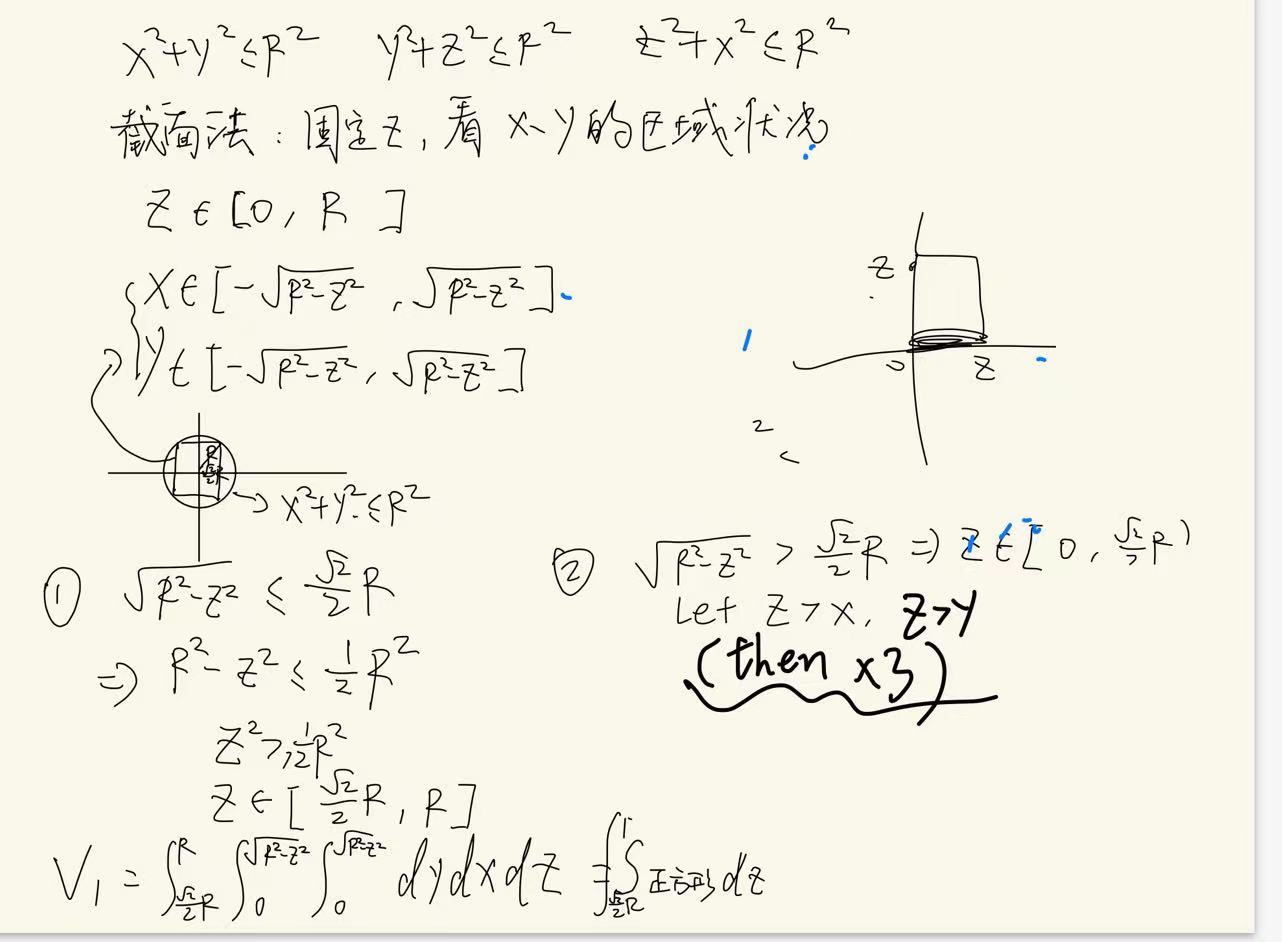 x²+y²≤R² y²+z²≤R² z²+x²≤R²
截面法：固定z，看x、y的区域状况
z∈[0, R ]
{x∈[-√(R²-z²), √(R²-z²)]
y∈[-√(R²-z²), √(R²-z²)]
z
0 z
2
R
√2/2 R
→ x²+y²≤R²
① √(R²-z²) ≤ √2/2 R
⇒ R²-z² ≤ 1/2 R²
z² ≥ 1/2 R²
z∈[√2/2 R, R]
② √(R²-z²) > √2/2 R ⇒ z∈[0, √2/2 R)
Let z>x, z>y
(then ×3)
V₁ = ∫_{√2/2 R}^{R} ∫_0^{√(R²-z²)} ∫_0^{√(R²-z²)} dydxdz = ∫_{√2/2 R}^{1} S正方形dz